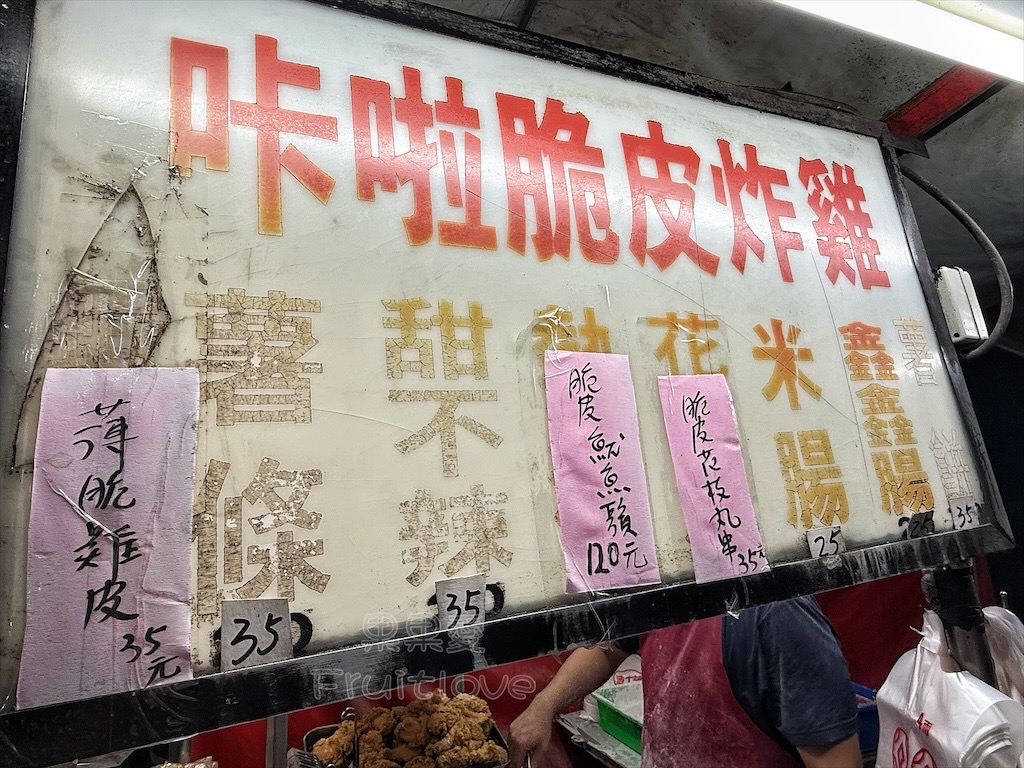 咔啦脆皮炸雞
薄脆雞皮
35元
薯條
35
甜不辣
35
脆皮魷魚鬚
120元
花
脆皮花枝丸串
35元
米腸
25
鑫鑫腸
薯餅
35
果果愛
Fruitlove